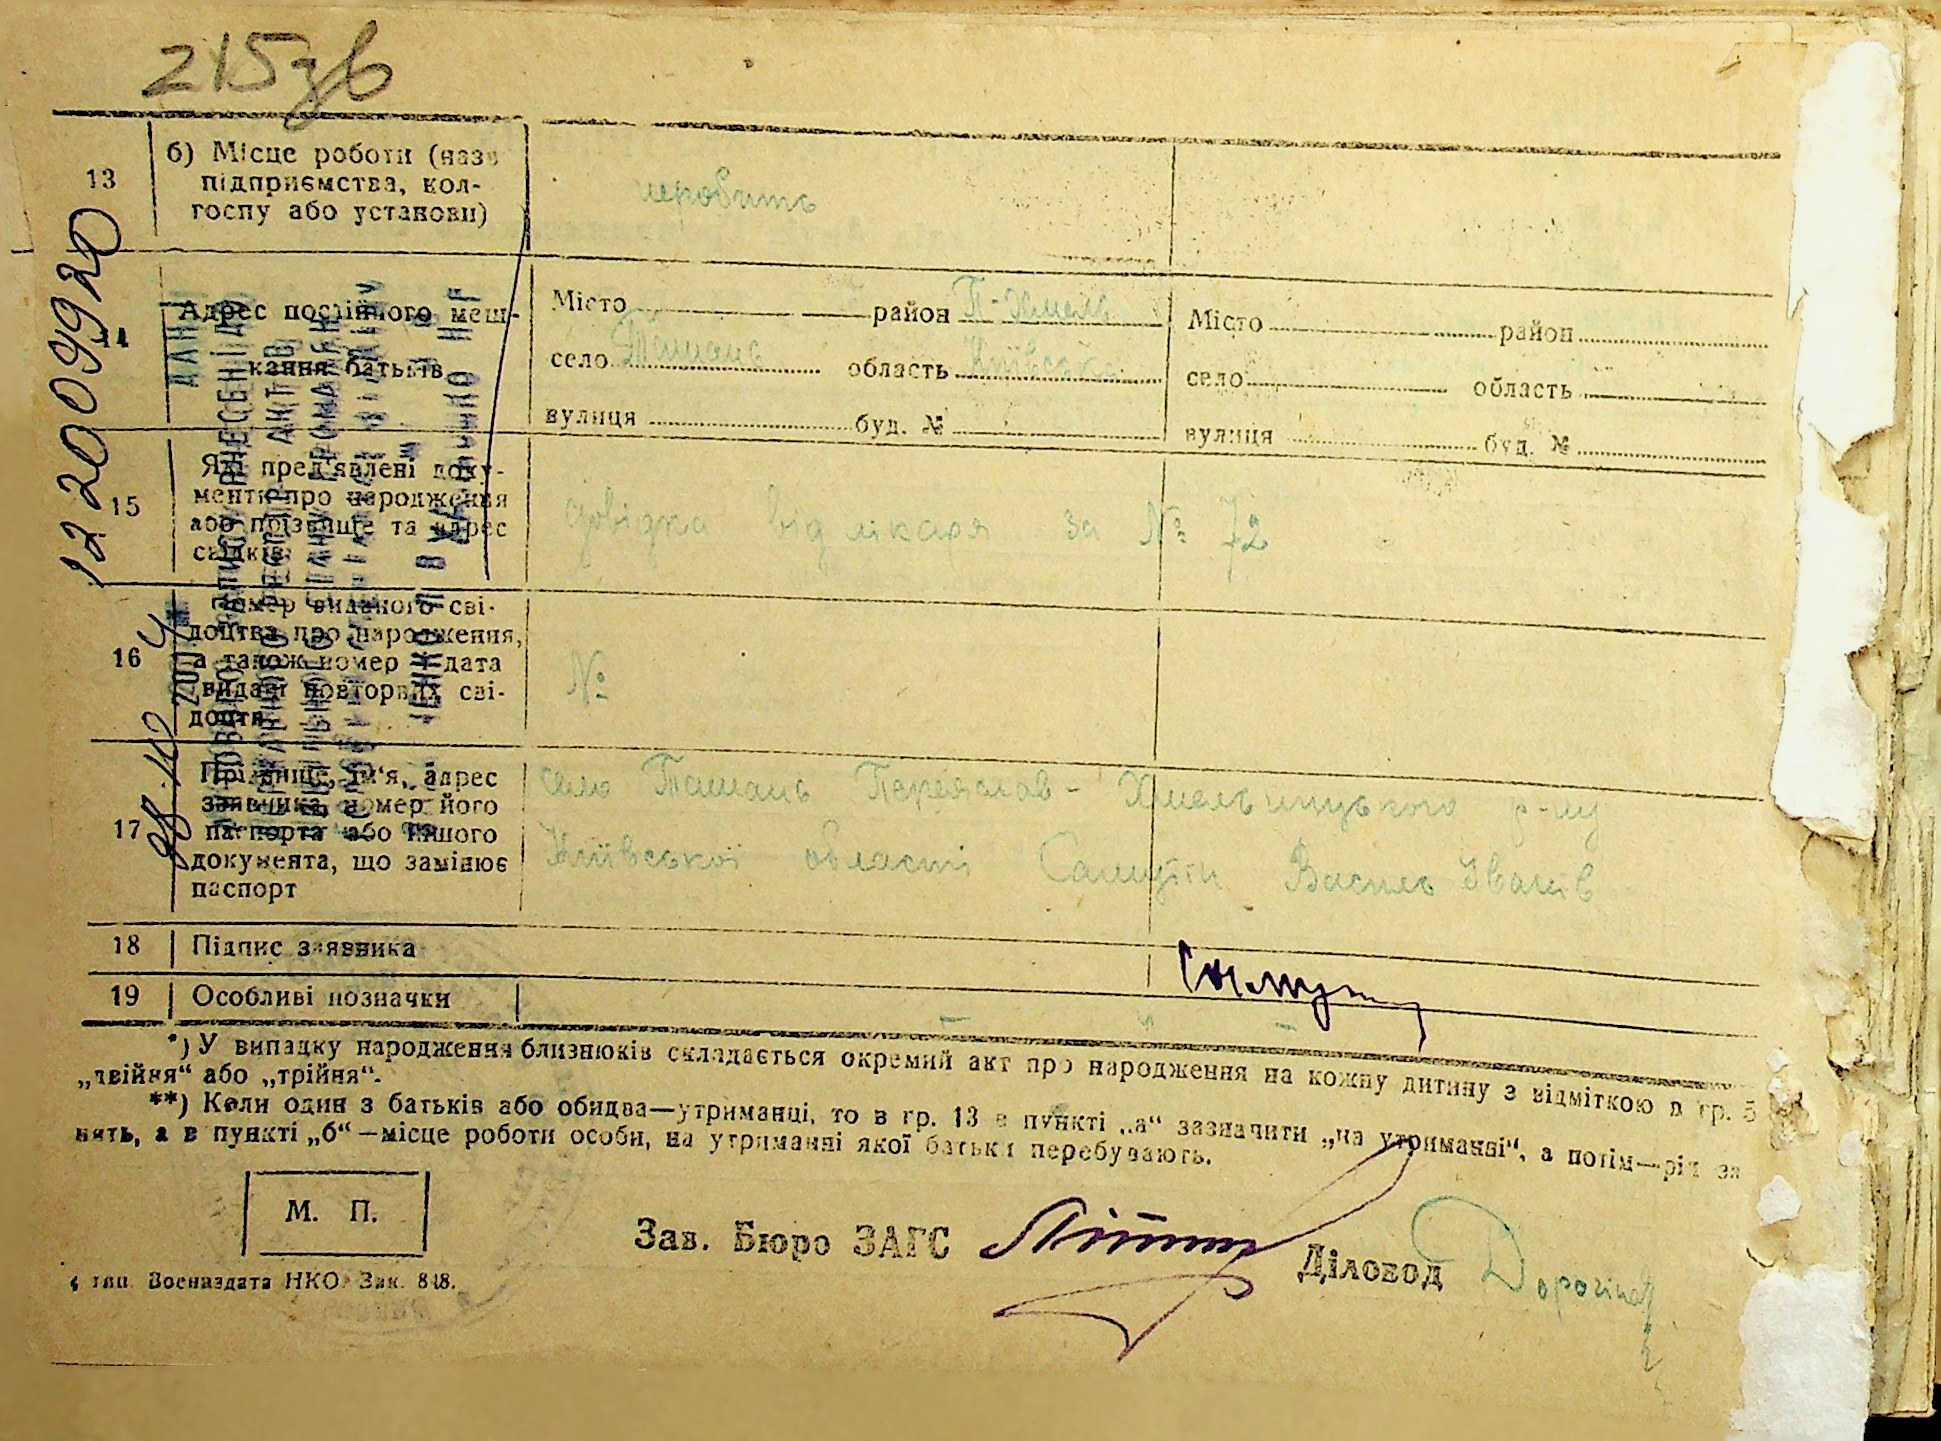 215зв
13
б) Місце роботи (назв
підприємства, кол-
госпу або установи)
неробить
14
Адрес постійного меш-
кання батьків
Місто район П-Хмель
село Ташань область Київська
вулиця буд. №
Місто район
село область
вулиця буд. №
15
Які пред'явлені доку-
менти про народження
або прізвище та адрес
свідків
довідка від лікаря за № 72
16
Номер виданого сві-
доцтва про народження,
а також номер і дата
видачі повторних сві-
доцтв
№
17
Прізвище, ім'я, адрес
заявника, номер його
паспорта або іншого
документа, що замінює
паспорт
село Ташань Переяслав-Хмельницького р-ну
Київської області Василь Іванів
18
Підпис заявника
19
Особливі позначки
*) У випадку народження близнюків складається окремий акт про народження на кожну дитину з відміткою в гр. 5
„двійня“ або „трійня“.
**) Коли один з батьків або обидва—утриманці, то в гр. 13 в пункті „а“ зазначити „на утриманні“, а потім—рід за
нять, а в пункті „б“—місце роботи особи, на утриманні якої батьки перебувають.
М. П.
Зав. Бюро ЗАГС
Діловод
тип. Воениздата НКО. Зак. 848.
122009920